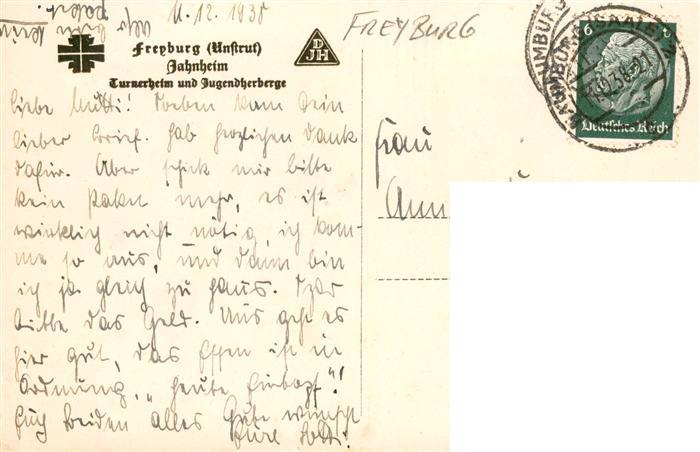 11.12.1938
FREYBURG
Freyburg (Unstrut)
Jahnheim
Turnerheim und Jugendherberge
DJH
6
Deutsches Reich
Liebe Mutti! Soeben kam Dein
lieber Brief. Hab herzlichen Dank
dafür. Aber schick mir bitte
kein Paket mehr, es ist
wirklich nicht nötig, ich kom-
me so aus, und dann bin
ich ja gleich zu Haus.
bitte das Geld. Uns geht es
hier gut, das Essen ist in
Ordnung, „heute Eintopf"!
Euch beiden alles Gute wünscht
Eure
Frau